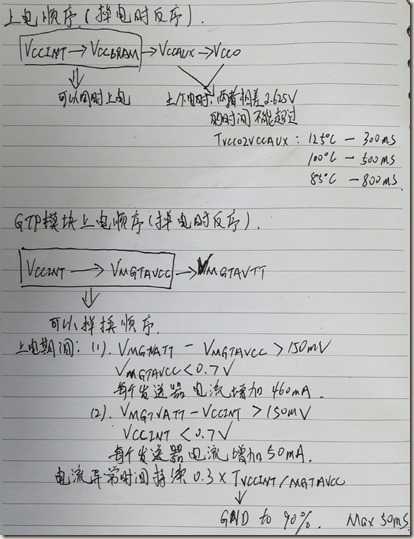 上电顺序(掉电时反序).
VCCINT→VCCBRAM→VCCAUX→VCCO
可以同时上电
上/下电时:两者相差2.625V
的时间不能超过
TVCCO2VCCAUX: 125°C - 300ms
100°C - 500ms
85°C - 800ms
GTP模块上电顺序(掉电时反序).
VCCINT → VMGTAVCC → VMGTAVTT
可以掉换顺序.
上电期间: (1). VMGTVATT - VMGTAVCC > 150mV
VMGTAVCC < 0.7V
每个发送器电流增加460mA.
(2). VMGTVATT - VCCINT > 150mV
VCCINT < 0.7V
每个发送器电流增加50mA.
电流异常时间持续0.3×TVCCINT/MGTAVCC
GND to 90%. Max 50ms